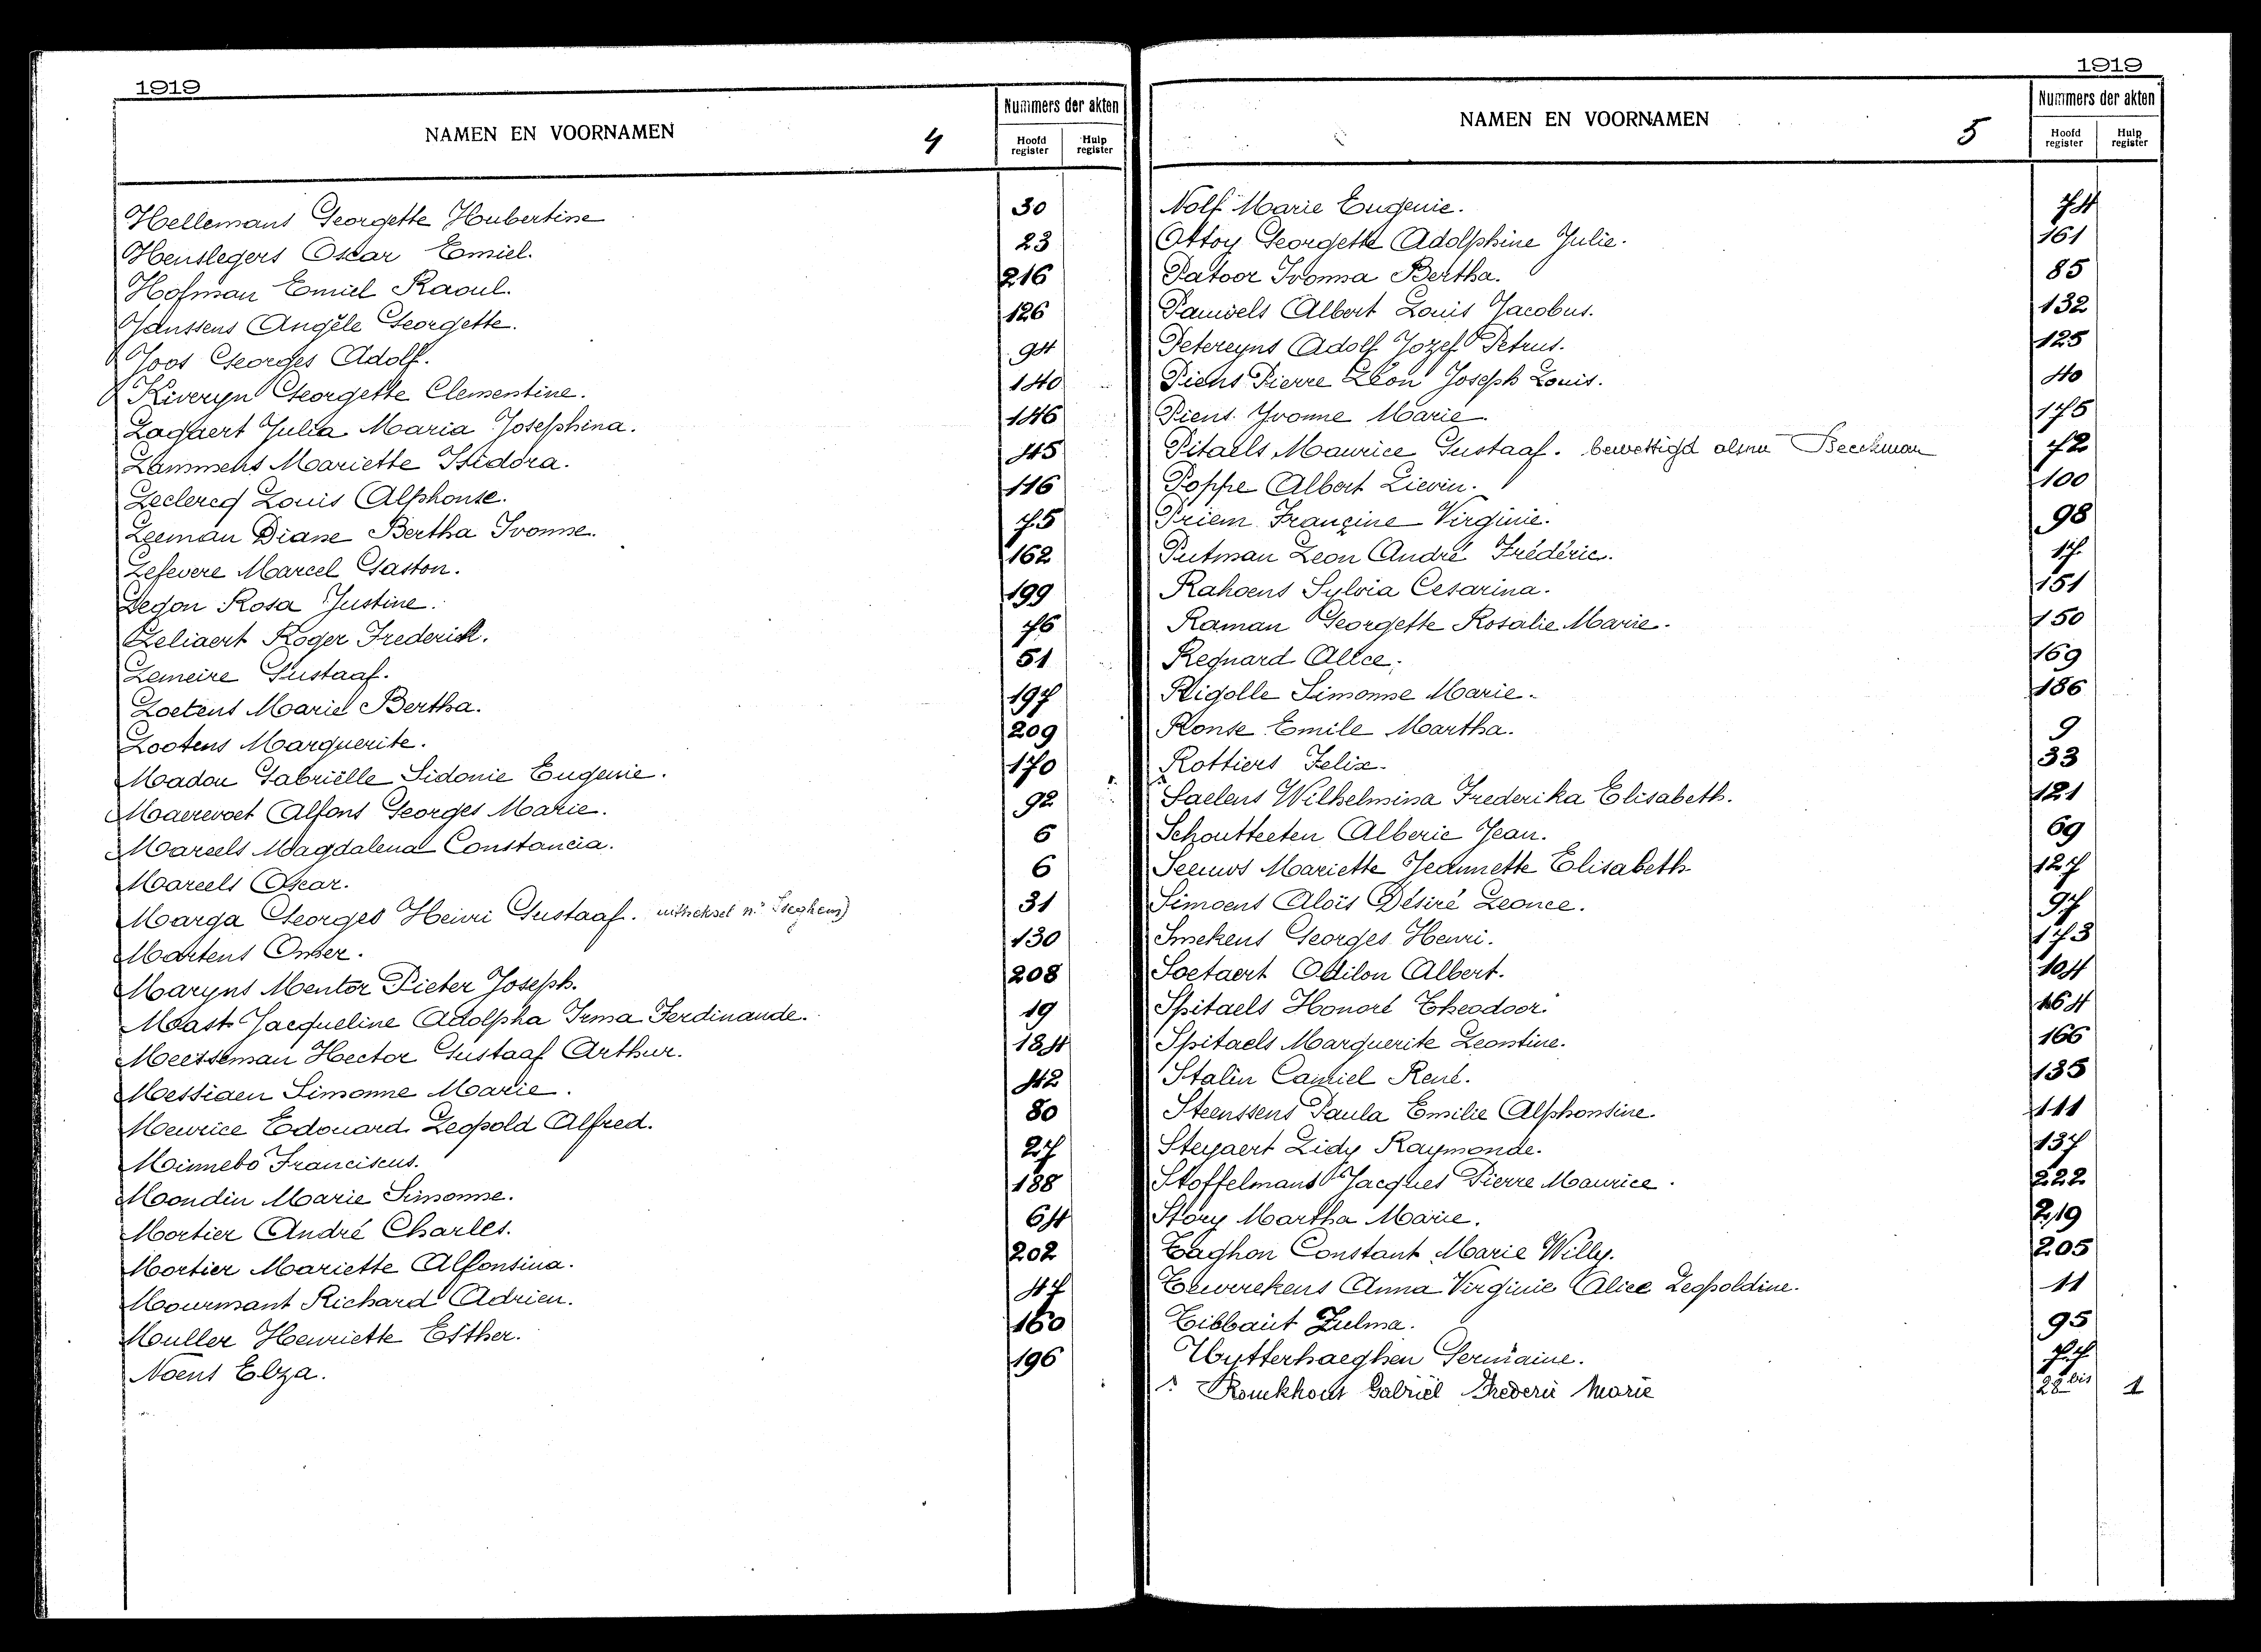 1919
NAMEN EN VOORNAMEN 4 Nummers der akten
Hoofd register Hulp register
Hellemans Georgette Hubertine 30
Henslegers Oscar Emiel. 23
Hofman Emiel Raoul. 216
Janssens Angèle Georgette. 126
Joos Georges Adolf. 94
Kiveryn Georgette Clementine. 140
Lagaert Julia Maria Josephina. 146
Lammens Mariette Isidora. 45
Leclercq Louis Alphonse. 116
Leeman Diane Bertha Ivonne. 75
Lefevere Marcel Gaston. 162
Legon Rosa Justine. 199
Leliaert Roger Frederick. 76
Lemeire Gustaaf. 51
Loetens Marie Bertha. 197
Lootens Marguerite. 209
Madou Gabriëlle Sidonie Eugenie. 170
Maerevoet Alfons Georges Marie. 92
Mareels Magdalena Constancia. 6
Mareels Oscar. 6
Marga Georges Heinri Gustaaf. 31
Martens Omer. 130
Maryns Mentor Pieter Joseph. 208
Mast Jacqueline Adolpha Irma Ferdinande. 19
Meesseman Hector Gustaaf Arthur. 184
Messiaen Simonne Marie. 42
Meurice Edouard Leopold Alfred. 80
Minnebo Franciscus. 27
Moondin Marie Simonne. 188
Mortier André Charles. 64
Mortier Mariette Alfonsina. 202
Mourmant Richard Adrien. 47
Muller Henriette Esther. 160
Noens Elza. 196
1919
NAMEN EN VOORNAMEN 5 Nummers der akten
Hoofd register Hulp register
Nolf Marie Eugenie. 74
Ottoy Georgette Adolphine Julie. 161
Patoor Ivonna Bertha. 85
Pauwels Albert Louis Jacobus. 132
Petereyns Adolf Jozef Petrus. 125
Piens Pierre Léon Joseph Louis. 40
Piens Yvonne Marie. 175
Pitaels Maurice Gustaaf. bewettigd Beeckman 72
Poppe Albert Lievin. 100
Priem Francine Virginie. 98
Putman Leon André Frédéric. 17
Rahoens Sylvia Cesarina. 151
Raman Georgette Rosalie Marie. 150
Regnard Alice. 169
Rigolle Simonne Marie. 186
Ronse Emile Martha. 9
Rottiers Felix. 33
Saelens Wilhelmina Frederika Elisabeth. 121
Schoutteeten Alberic Jean. 69
Seeuws Mariette Jeannette Elisabeth 127
Simoens Aloïs Désiré Leonce. 97
Smekens Georges Henri. 173
Soetaert Odilon Albert. 104
Spitaels Honoré Theodoor. 164
Spitaels Marguerite Leontine. 166
Stalin Camiel René. 135
Steenssens Paula Emilie Alphonsine. 111
Steyaert Lidy Raymonde. 137
Stoffelmans Jacques Pierre Maurice. 222
Story Martha Marie. 219
Taghon Constant Marie Willy. 205
Tewerekens Anna Virginie Alice Leopoldine. 11
Tibbaut Zulma. 95
Uytterhaeghen Germaine. 77
Ronckhout Gabriël Frederic Marie 28 bis 1